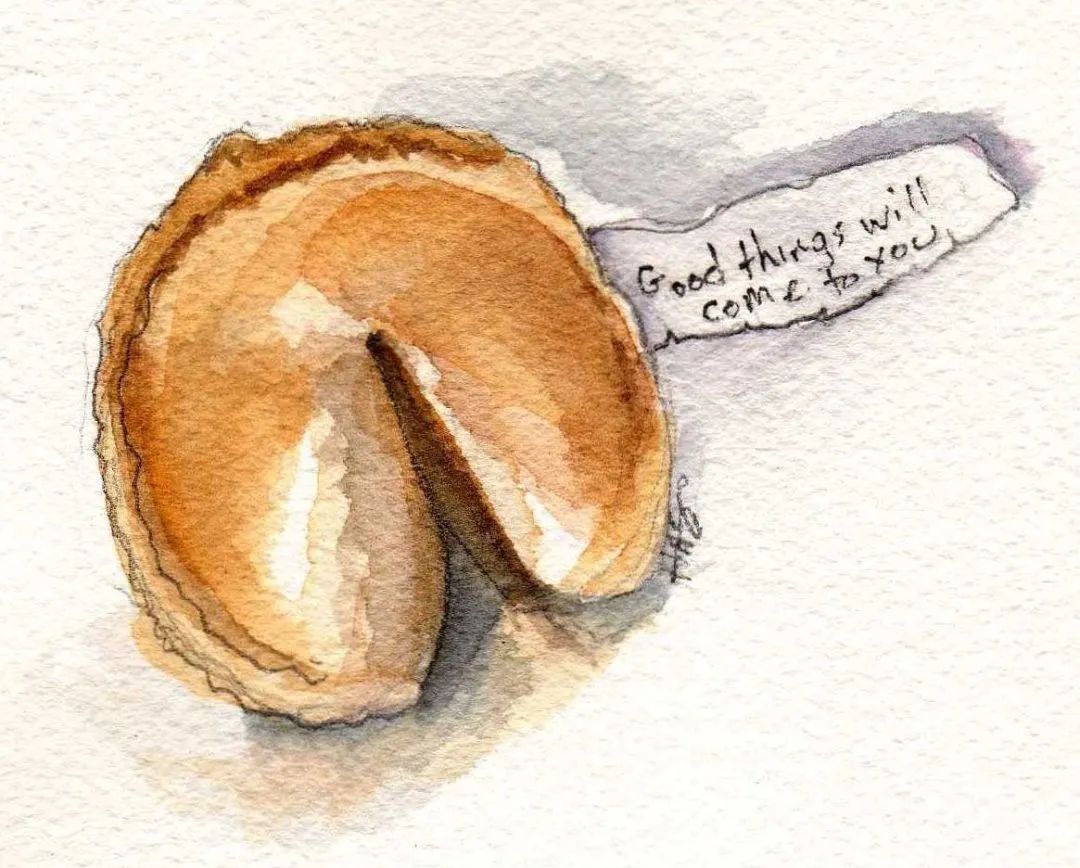 Good things will
come to you